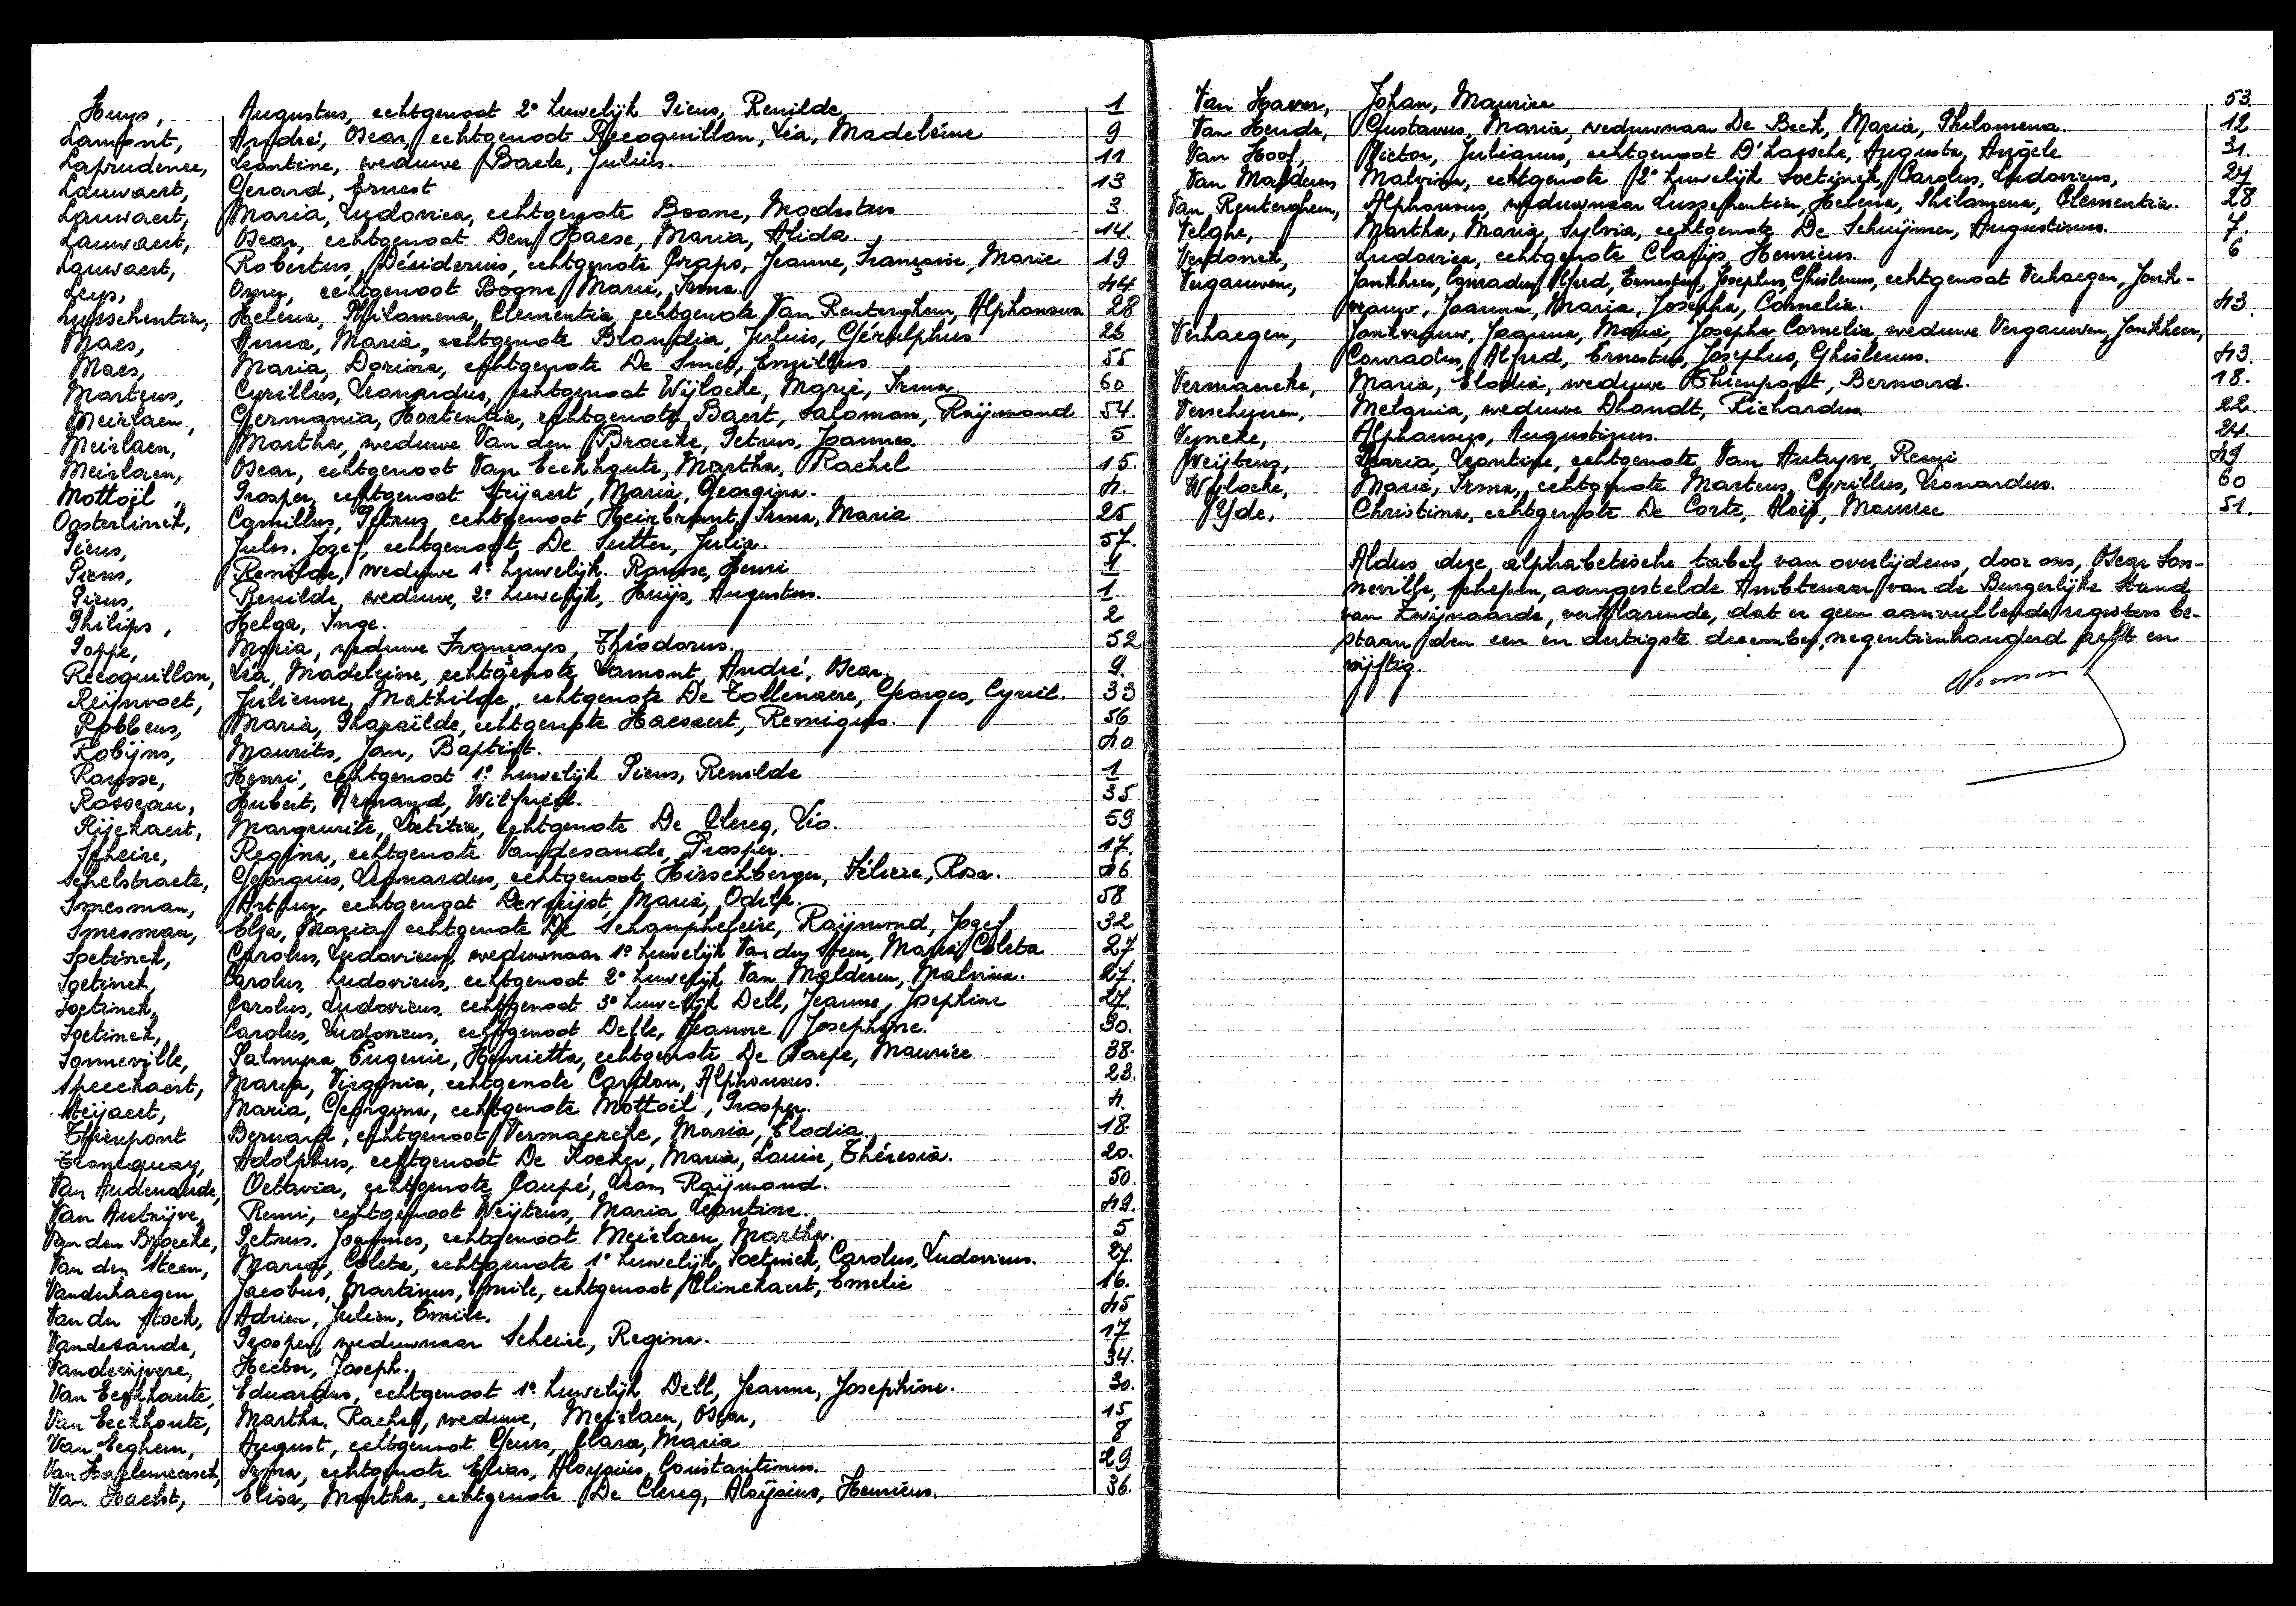 Huys, Augustus, echtgenoot 2e huwelijk Piens, Renilde 1
Lamont, André, Oscar, echtgenoot Recoquillon, Lia, Madeleine 9
Laprudence, Leontine, weduwe Baele, Julius. 11
Lauwaert, Gerard, Ernest 13
Lauwaert, Maria, Ludovica, echtgenote Boone, Modestus 3
Lauwaert, Oscar, echtgenoot Den Haese, Maria, Alida. 14.
Lauwaert, Robertus, Désiderius, echtgenote Craps, Jeanne, Françoise, Marie 19
Leys, Omer, echtgenoot Bogne, Marie, Irma. 44
Lussehentia, Helena, Philomena, Clementia echtgenote Van Renterghem, Alphonsus 28
Maes, Anna, Maria, echtgenote Blondia, Julius, Gérulphus 26
Maes, Maria, Dorina, echtgenote De Smet, Emillius 55
Martens, Cyrillus, Leonardus, echtgenoot Wijlocke, Marie, Irma. 60
Meirlaen, Germania, Hortentia, echtgenote Baert, Saloman, Raijmond 54.
Meirlaen, Martha, weduwe Van den Broecke, Petrus, Joannes. 5
Meirlaen, Oscar, echtgenoot Van Eeckhoute, Martha, Rachel 15.
Mottoil, Prosper, echtgenoot Steijaert, Maria, Georgina. 4.
Oosterlinck, Camillus, Petrus, echtgenoot Heirbrant, Irma, Maria 25
Piens, Jules. Jozef, echtgenoot De Sutter, Julia. 57.
Piens, Renilde, weduwe 1e huwelijk. Ronsse, Henri 1
Piens, Renilde, weduwe, 2e huwelijk, Huijs, Augustus. 1
Philips, Helga, Inge. 2
Poppe, Maria, weduwe François, Théodorus. 52
Recoquillon, Lia, Madeleine, echtgenote Lamont, André, Oscar 9.
Reijnvoet, Julienne, Mathilde, echtgenote De Tollenaere, Georges, Cyriel. 33
Robbens, Maria, Pharaïlde, echtgenote Haesaert, Remigius. 56
Robijns, Maurits, Jan, Baptist. 40
Ronsse, Henri, echtgenoot 1e huwelijk Piens, Renilde 1
Rosseau, Hubert, Armand, Wilfried. 35
Rijckaert, Marguerite, Laetitia, echtgenote De Clercq, Léo. 59
Scheire, Regina, echtgenote Vandesande, Prosper. 17.
Schelstraete, Georgius, Leonardus, echtgenoot Hirschberger, Féliere, Rosa. 46
Smesman, Arthur, echtgenoot Devreijst, Maria, Odila. 58
Smesman, Elza, Maria, echtgenote De Schampheleire, Raijmond, Jozef 32
Soetinck, Carolus, Ludovicus, weduwnaar 1e huwelijk Van den Steen, Maria, Coleta 27
Soetinck, Carolus, Ludovicus, echtgenoot 2e huwelijk Van Malderen, Malvina. 27.
Soetinck, Carolus, Ludovicus, echtgenoot 3e huwelijk Dell, Jeanne, Josephine 27.
Soetinck, Carolus, Ludovicus, echtgenoot Delle, Jeanne, Josephine. 30.
Sonneville, Palmyra, Eugenie, Henrietta, echtgenote De Paepe, Maurice 38.
Speeckaert, Maria, Virginia, echtgenote Cardon, Alphonsus. 23.
Steijaert, Maria, Georgina, echtgenote Mottoil, Prosper. 4.
Thienpont Bernard, echtgenoot Vermaercke, Maria, Elodia. 18.
Trancquay, Adolphus, echtgenoot De Kocker, Maria, Louise, Thérésia. 20.
Van Audenaerde, Octavia, echtgenote Coupé, Leon, Raijmond. 50.
Van Autrijve, Remi, echtgenoot Weijtens, Maria, Leontine. 49.
Van den Broecke, Petrus, Joannes, echtgenoot Meirlaen, Martha. 5
Van den Steen, Maria, Coleta, echtgenote 1e huwelijk Soetinck, Carolus, Ludovicus. 27.
Vanderhaegen, Jacobus, Martinus, Emile, echtgenoot Clinckaert, Emelie 16.
Van der Stock, Adrien, Julien, Emile. 45
Vandesande, Prosper, weduwnaar Scheire, Regina. 17
Vandevijvere, Hector, Joseph. 34.
Van Eeckhaute, Eduardus, echtgenoot 1e huwelijk Dell, Jeanne, Josephine. 30.
Van Eeckhoute, Martha, Rachel, weduwe, Meirlaen, Oscar, 15
Van Eeghem, August, echtgenoot Geurs, Clara, Maria 8
Van Haelemeersch, Irma, echtgenote Elias, Aloysius, Constantinus. 29
Van Haelst, Elisa, Martha, echtgenote De Clercq, Aloijsius, Henricus. 36.
Van Haver, Johan, Maurice 53.
Van Hende, Gustavus, Maria, weduwnaar De Bock, Maria, Philomena. 12
Van Hoof, Victor, Julianus, echtgenoot D'Lassche, Augusta, Angèle 31.
Van Malderen Malvina, echtgenote 2e huwelijk Soetinck, Carolus, Ludovicus, 27
Van Renterghem, Alphonsus, weduwnaar Lussehentia, Helena, Philomena, Clementia. 28
Velghe, Martha, Maria, Sylvia, echtgenote De Schuijmer, Augustinus. 7.
Verdonck, Ludovica, echtgenote Claeijs, Henricus. 6
Vergauwen, Jonkheer, Conradus, Alfred, Ernestus, Josephus, Ghislenus, echtgenoot Verhaegen, Jonk-
vrouw, Joanna, Maria, Josepha, Cornelia. 43.
Verhaegen, Jonkvrouw, Joanna, Maria, Josepha Cornelia, weduwe Vergauwen, Jonkheer,
Conradus, Alfred, Ernestus, Josephus, Ghislenus. 43.
Vermaercke, Maria, Elodia, weduwe Thienpont, Bernard. 18.
Verschueren, Melania, weduwe Dhondt, Richardus. 22.
Vyncke, Alphonsus, Augustinus. 24.
Weijtens, Maria, Leontine, echtgenote Van Autryve, Remi 49
Wijlocke, Marie, Irma, echtgenote Martens, Cyrillus, Leonardus. 60
Yde, Christina, echtgenote De Corte, Aloïs, Maurice 51.
Aldus deze alphabetische tabel van overlijdens, door ons, Oscar Son-
neville, schepen, aangestelde Ambtenaar van de Burgerlijke Stand
van Zwijnaarde, verklarende, dat er geen aanvullende registers be-
staan den een en dertigste december, negentienhonderd zeslf en
vijftig.